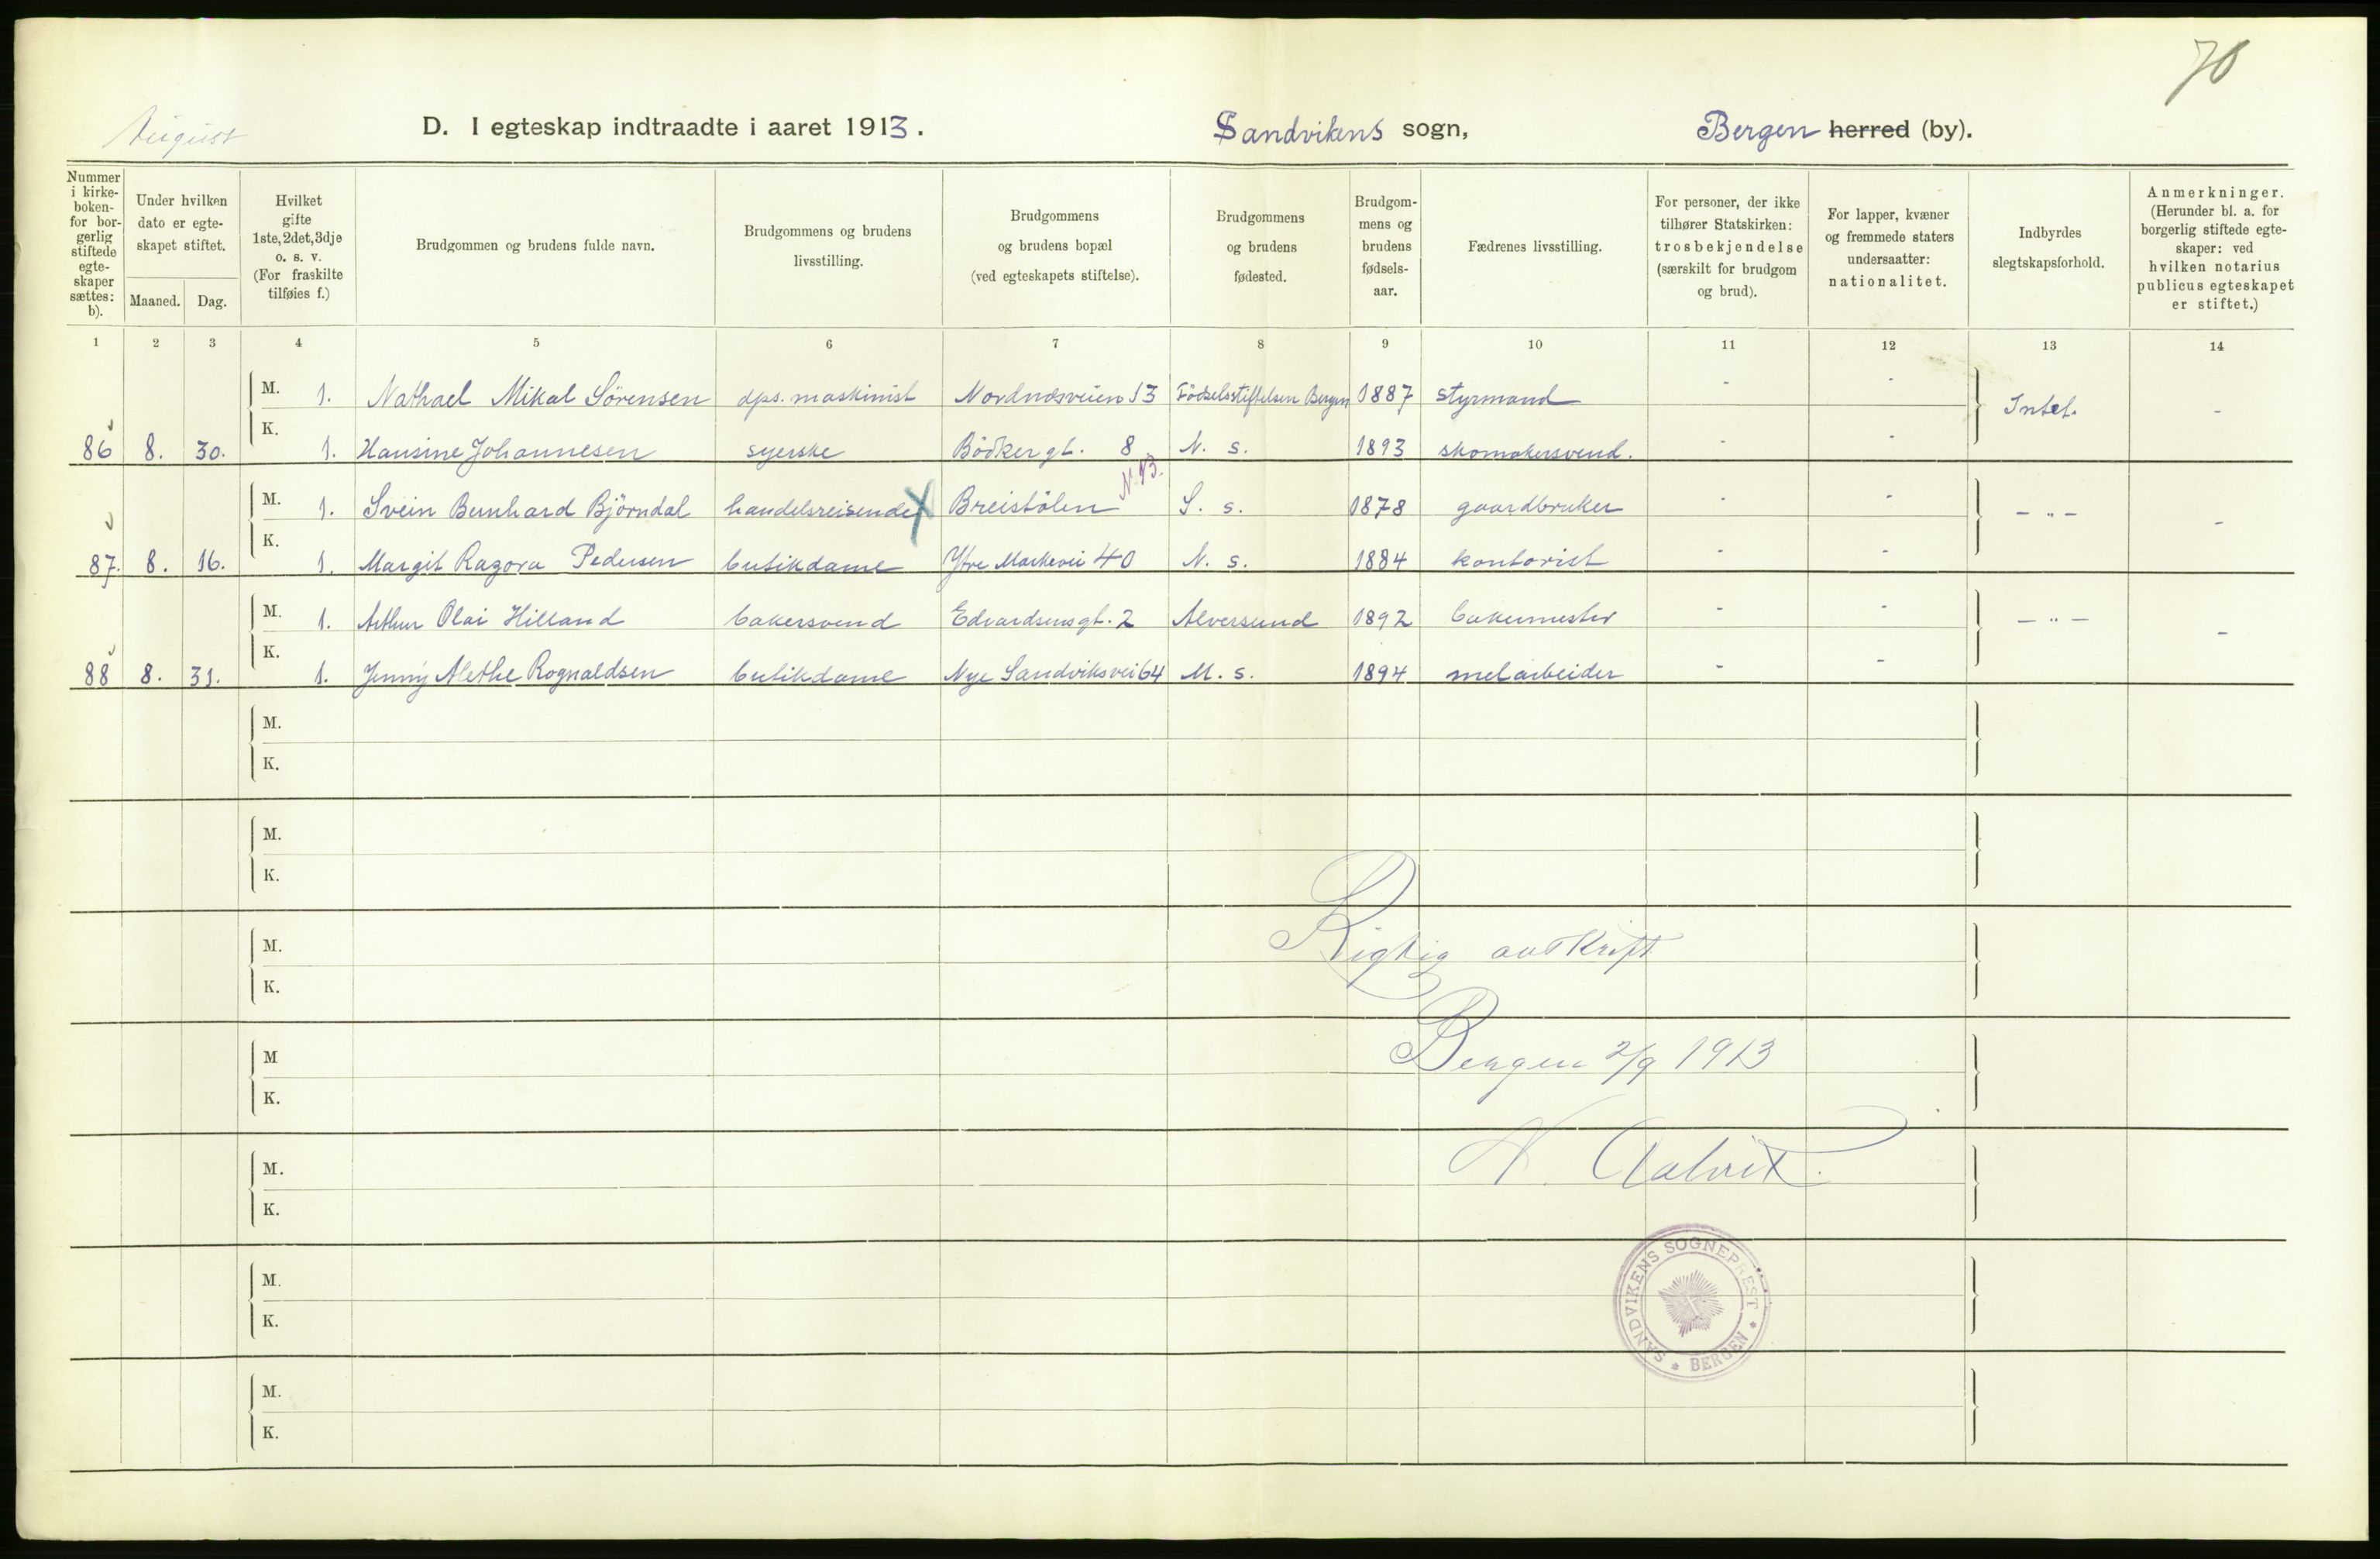 70
August
D. I egteskap indtraadte i aaret 1913. Sandvikens sogn, Bergen herred (by).
Nummer i kirke-boken- for bor-gerlig stiftede egte-skaper sættes: b).
Under hvilken dato er egte-skapet stiftet.
Maaned. Dag.
Hvilket gifte 1ste, 2det, 3dje o. s. v. (For fraskilte tilføies f.)
Brudgommen og brudens fulde navn.
Brudgommens og brudens livsstilling.
Brudgommens og brudens bopæl (ved egteskapets stiftelse).
Brudgommens og brudens fødested.
Brudgom-mens og brudens fødsels-aar.
Fædrenes livsstilling.
For personer, der ikke tilhører Statskirken: trosbekjendelse (særskilt for brudgom og brud).
For lapper, kvæner og fremmede staters undersaatter: nationalitet.
Indbyrdes slegtskapsforhold.
Anmerkninger. (Herunder bl. a. for borgerlig stiftede egte-skaper: ved hvilken notarius publicus egteskapet er stiftet.)
1 2 3 4 5 6 7 8 9 10 11 12 13 14
M. 1. Nathael Mikal Sørensen dps. maskinist Nordnæsveien 13 Födselsstiftelsen Bergen 1887 styrmand - - Intet. -
86 8. 30. K. 1. Hansine Johannesen syerske Bödkergt. 8 N. s. 1893 skomakersvend. - -
N. 13.
M. 1. Svein Bernhard Björndal handelsreisende X Breistölen S. s. 1878 gaardbruker - - - " - -
87. 8. 16. K. 1. Margit Ragora Pedersen butikdame Ytre Markevei 40 N. s. 1884 kontorist - -
M. 1. Arthur Olai Hilland bakersvend Edvardsensgt. 2 Alversund 1892 bakermester - - - " - -
88 8. 31. K. 1. Jenny Alethe Rognaldsen butikdame Nye Sandviksvei 64 M. s. 1894 melarbeider - -
M.
K.
M.
K.
M.
K.
Rigtig avskrift
M
K.
Bergen 2/9 1913
M.
K.
N. Aalvik.
M.
K.
SANDVIKENS SOGNEPREST * BERGEN *
M.
K.